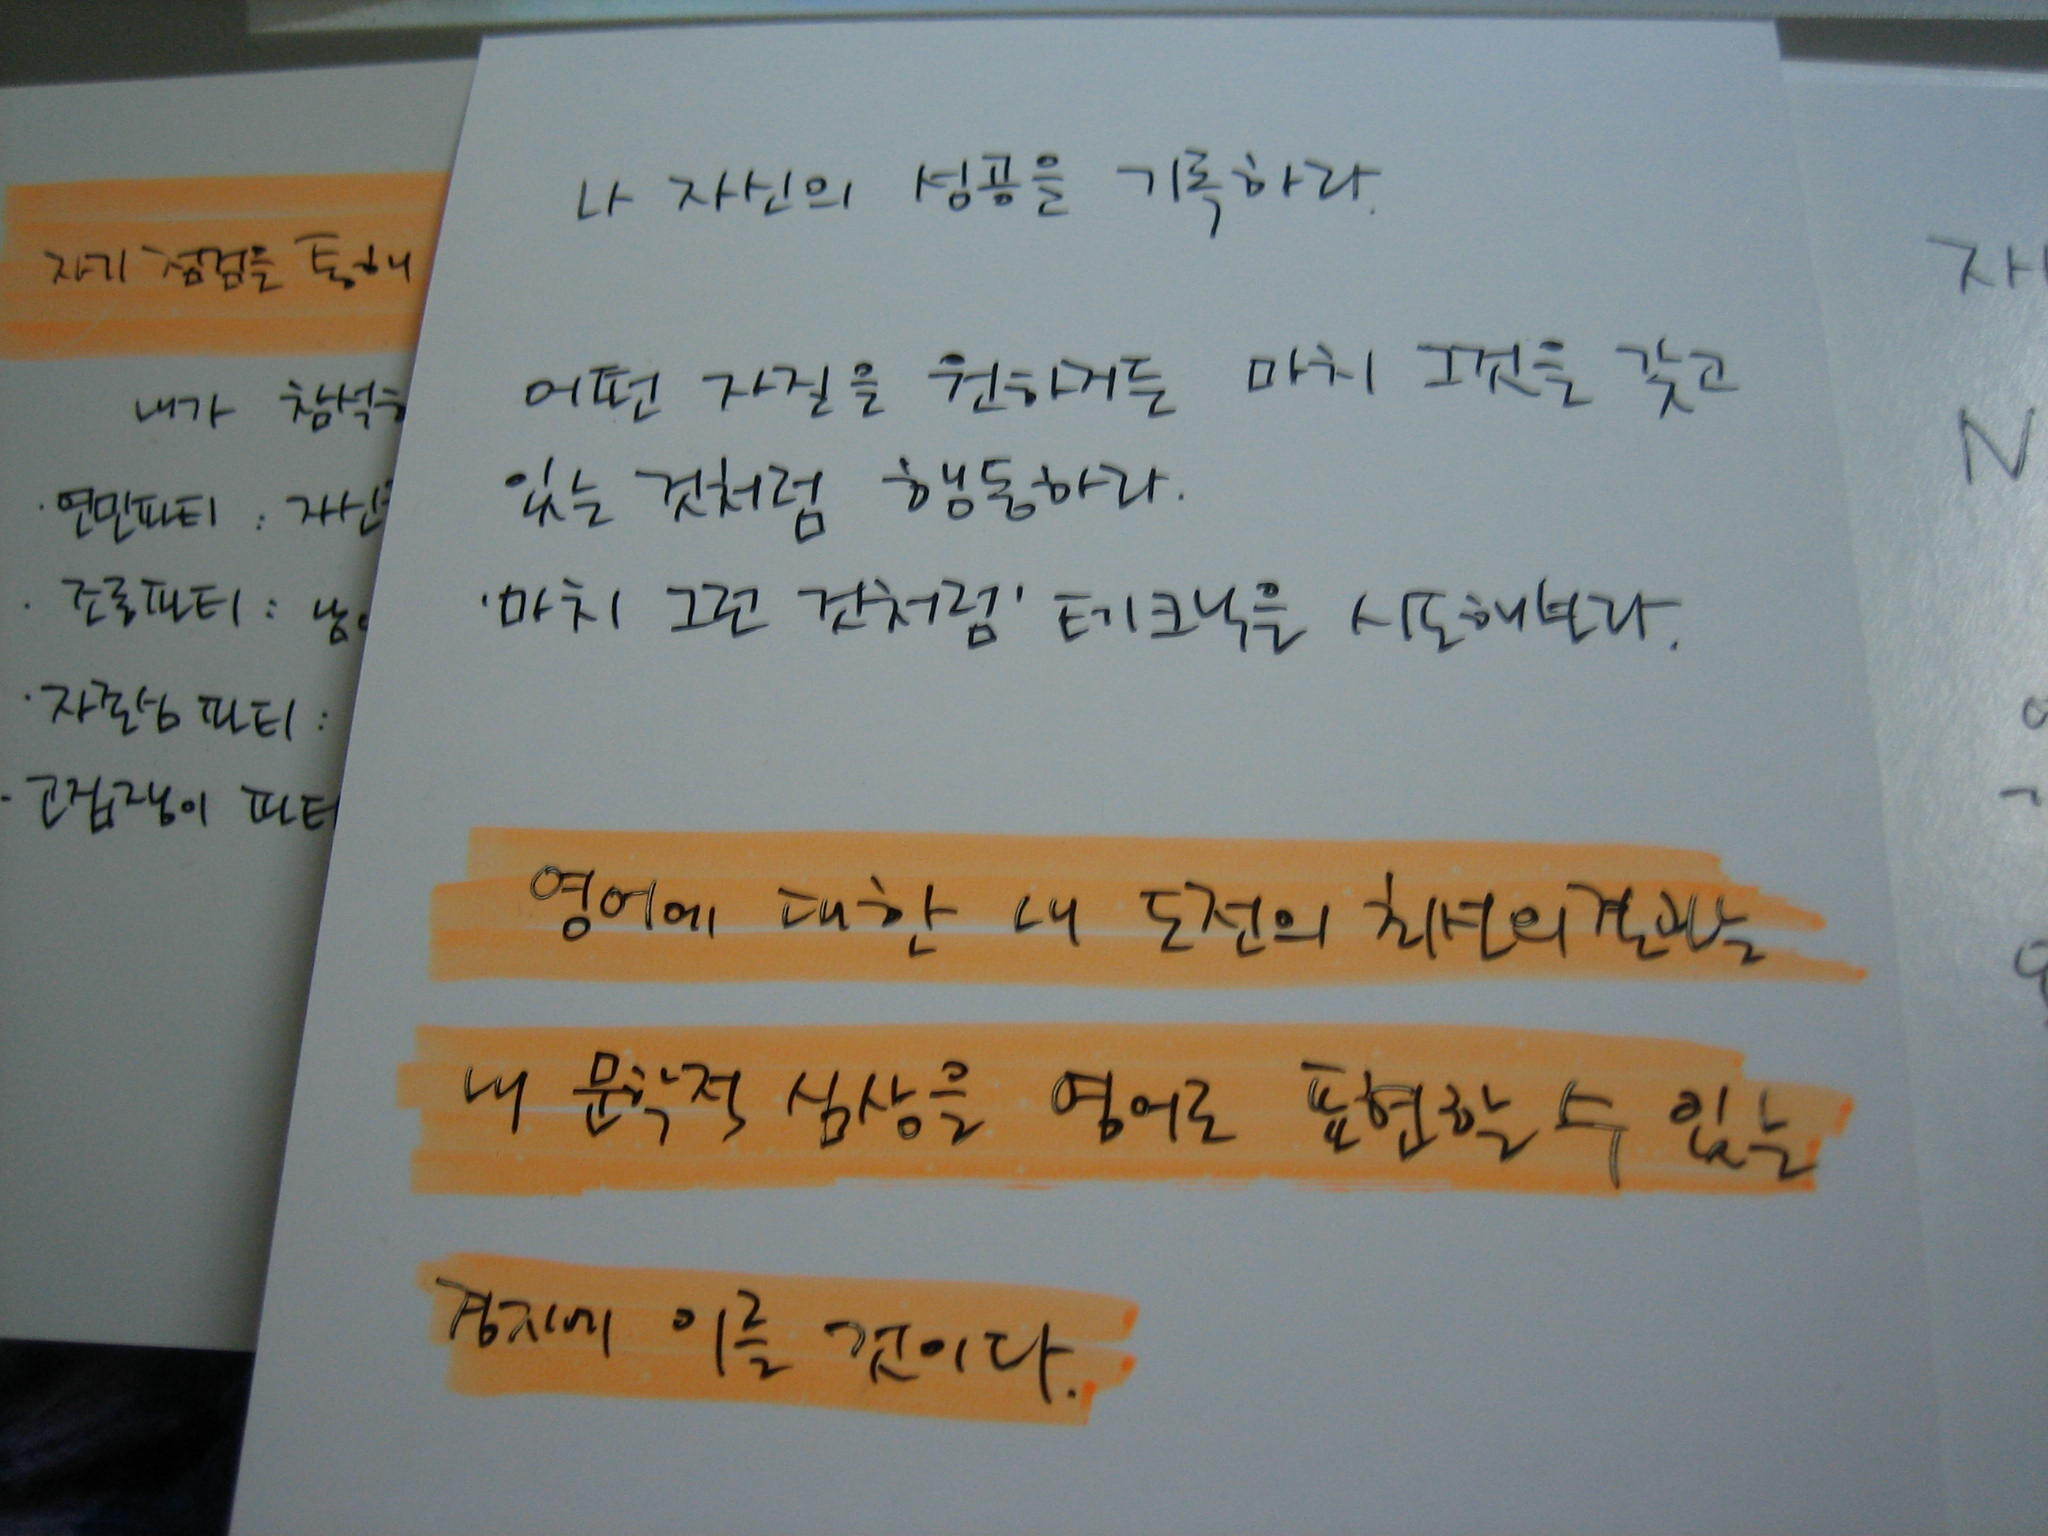 나 자신의 성공을 기록하라.
어떤 자질을 원하거든 마치 그것을 갖고
있는 것처럼 행동하라.
'마치 그런 것처럼' 테크닉을 시도해보라.
영어에 대한 내 도전의 최선의 결과는
내 문학적 심상을 영어로 표현할 수 있는
경지에 이를 것이다.
자기 점검을 통해
내가 참석하
· 연민파티 : 자신을
· 조롱파티 :
· 자존심 파티 :
· 고집쟁이 파티
N